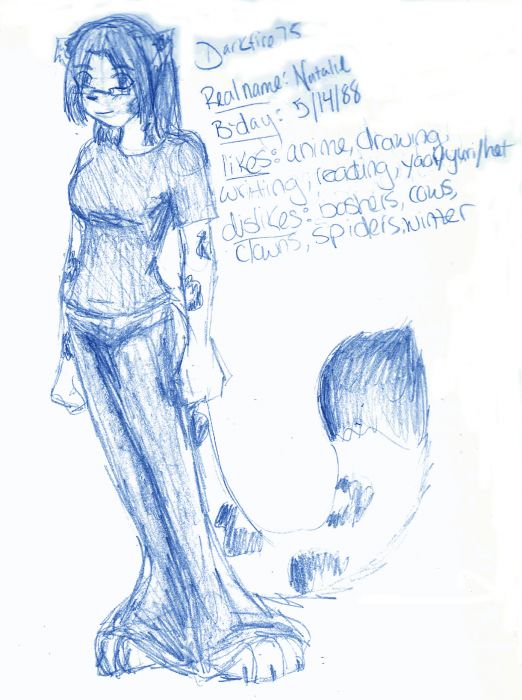 Darkfire75
Real name: Natalie
B-day: 5/14/88
likes: anime, drawing,
writting, reading, yaoi/yuri/het
dislikes: bashers, cows,
clowns, spiders, winter